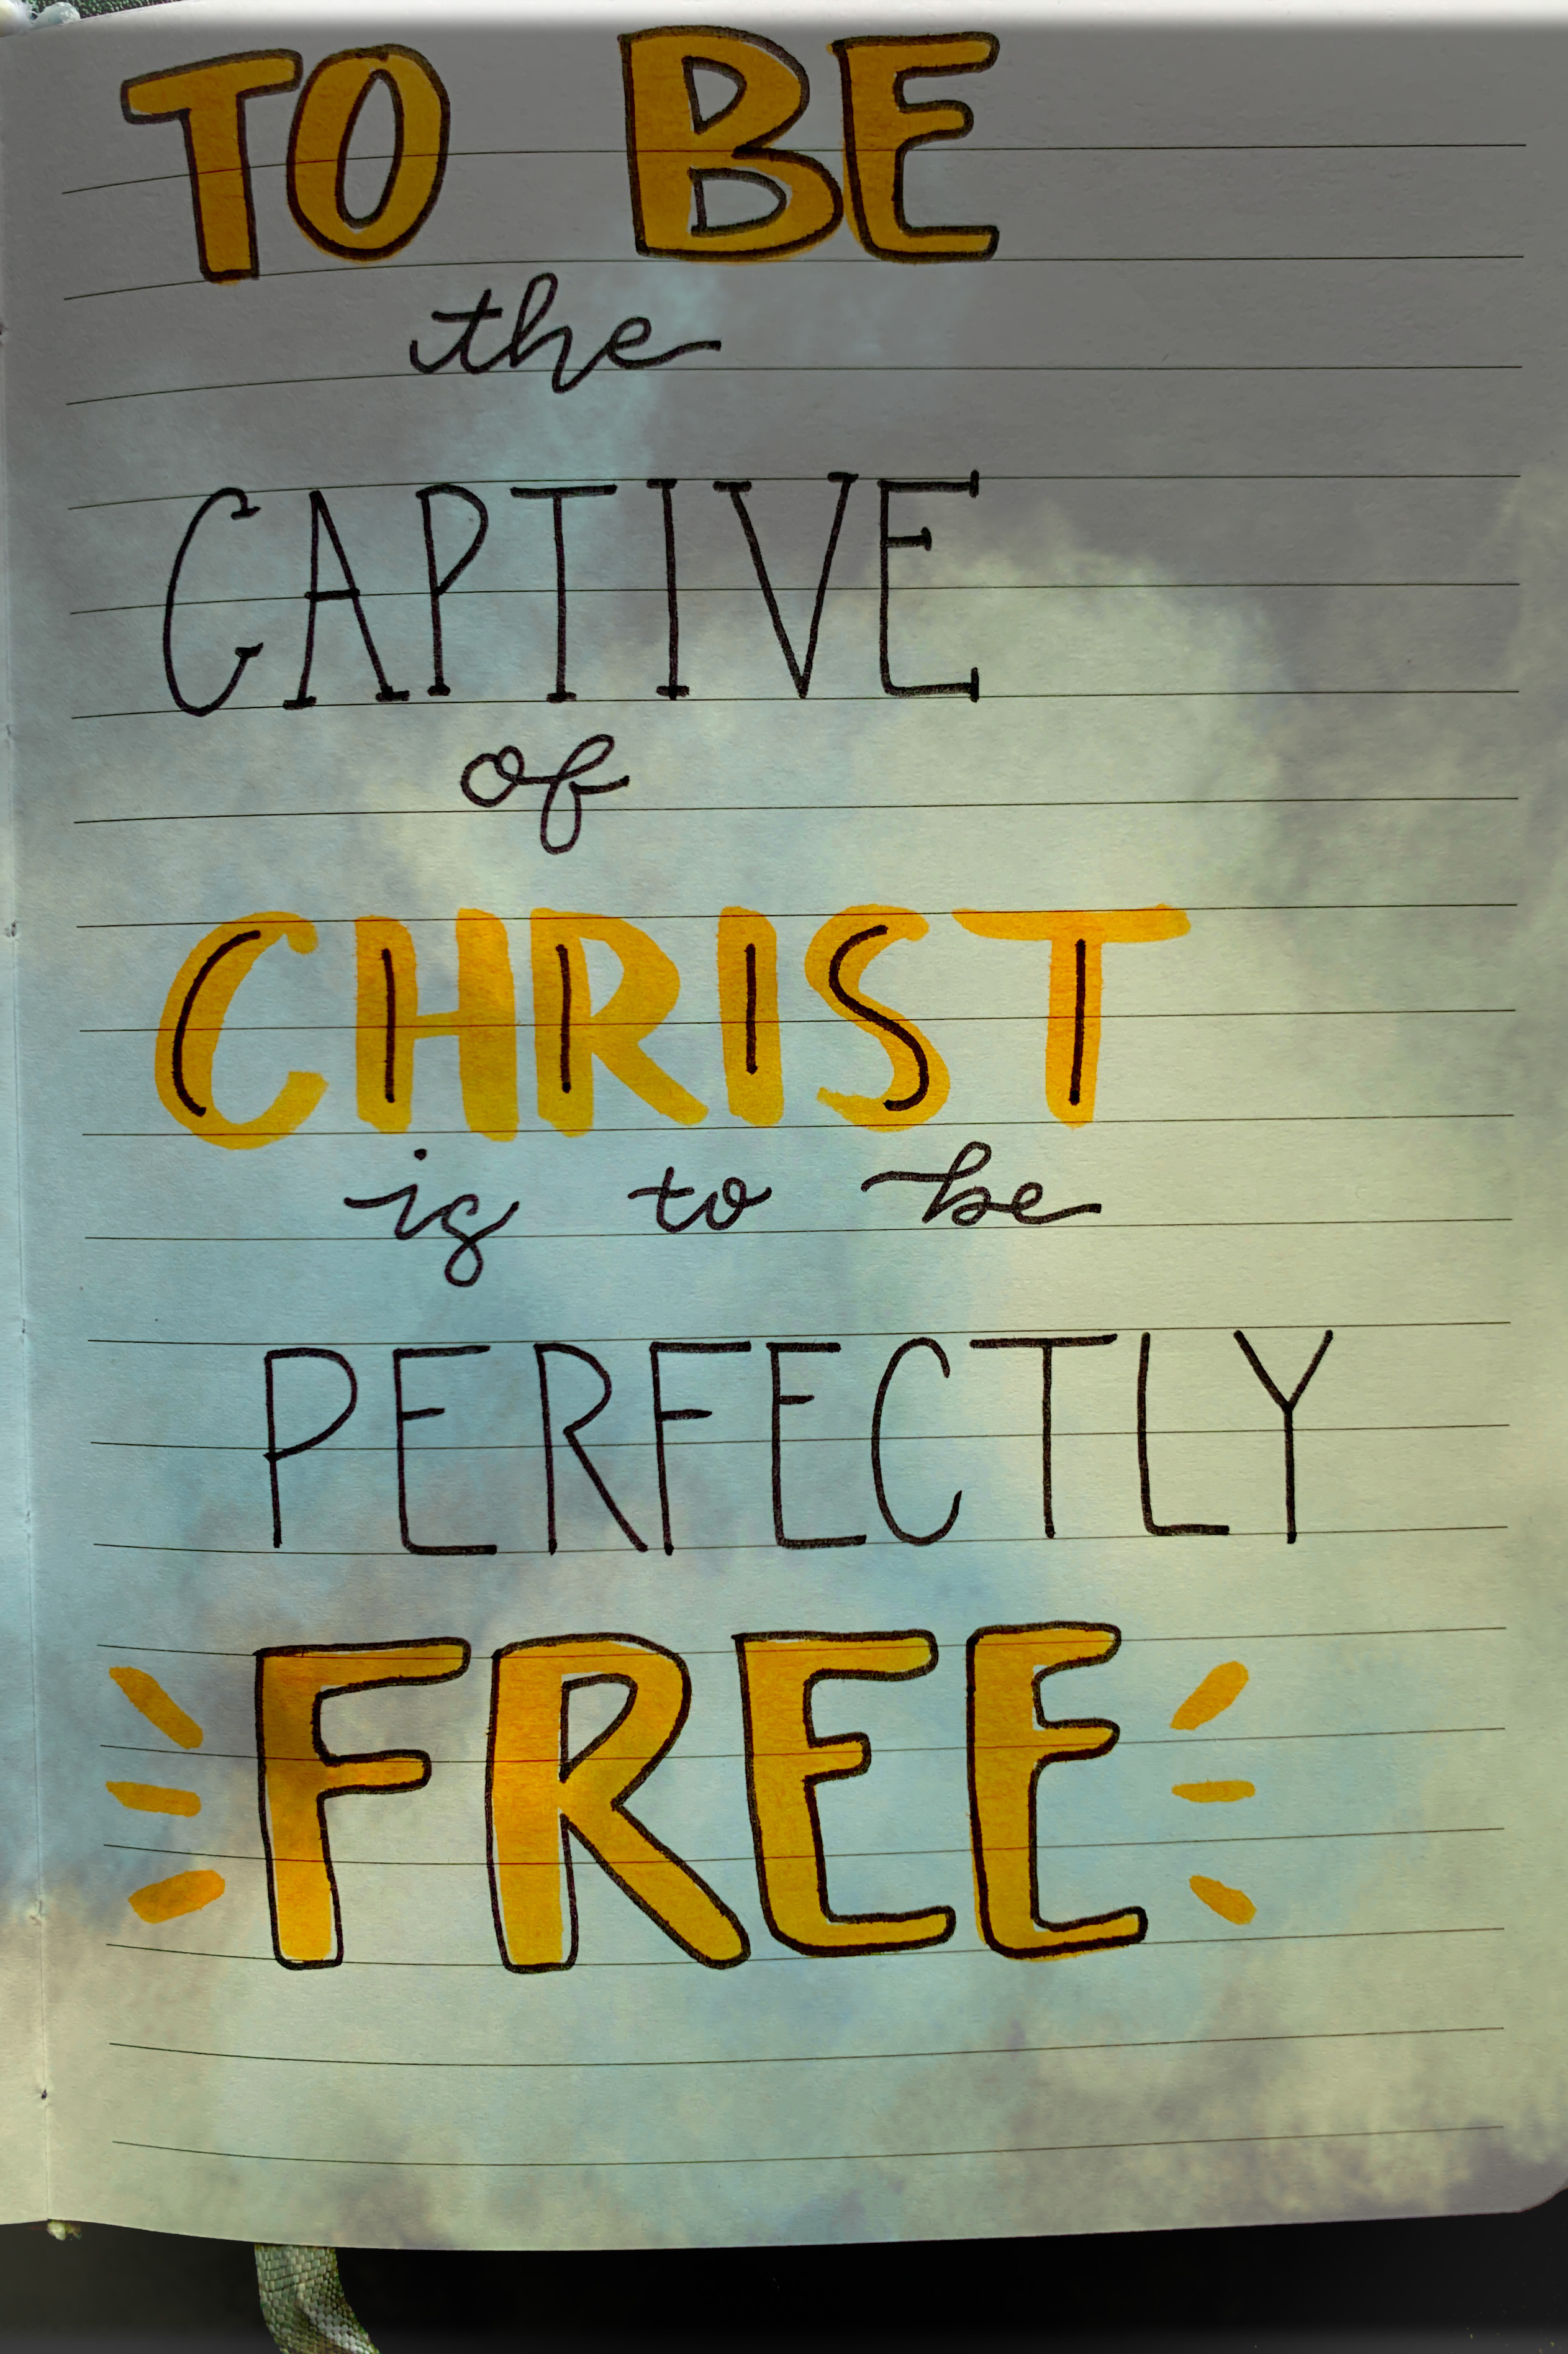 TO BE
the
CAPTIVE
of
CHRIST
is to be
PERFECTLY
FREE